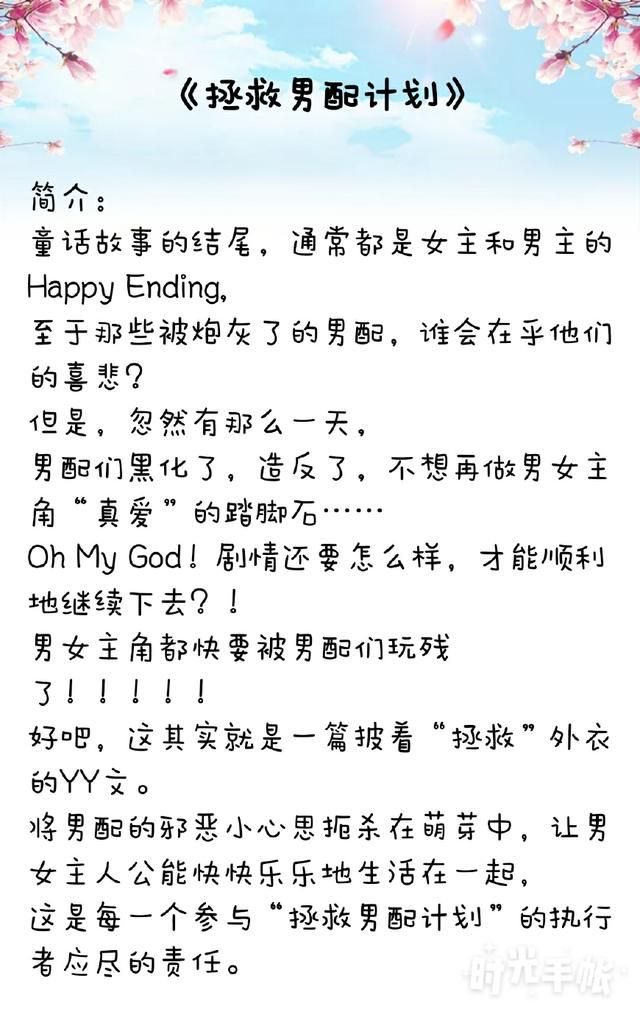 《拯救男配计划》
简介：
童话故事的结尾，通常都是女主和男主的
Happy Ending,
至于那些被炮灰了的男配，谁会在乎他们
的喜悲？
但是，忽然有那么一天，
男配们黑化了，造反了，不想再做男女主
角“真爱”的踏脚石……
Oh My God！剧情还要怎么样，才能顺利
地继续下去？！
男女主角都快要被男配们玩残
了！！！！！
好吧，这其实就是一篇披着“拯救”外衣
的YY文。
将男配的邪恶小心思扼杀在萌芽中，让男
女主人公能快快乐乐地生活在一起，
这是每一个参与“拯救男配计划”的执行
者应尽的责任。
时光手帐